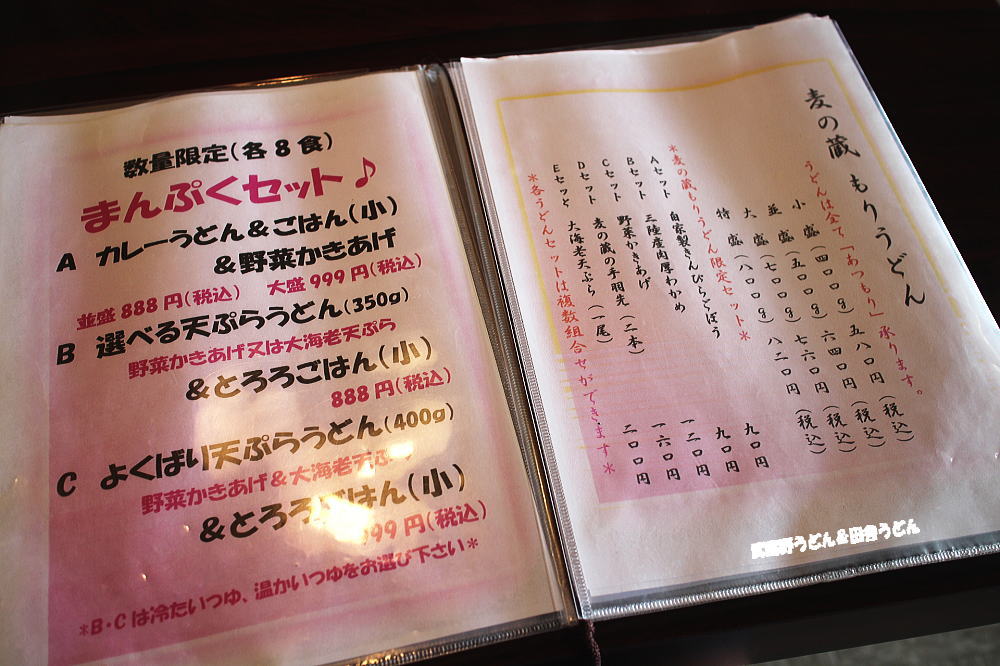 数量限定(各8食)
まんぷくセット♪
A カレーうどん&ごはん(小)
&野菜かきあげ
並盛888円(税込) 大盛999円(税込)
B 選べる天ぷらうどん(350g)
野菜かきあげ又は大海老天ぷら
&とろろごはん(小)
888円(税込)
C よくばり天ぷらうどん(400g)
野菜かきあげ&大海老天ぷら
&とろろごはん(小)
99円(税込)
*B・Cは冷たいつゆ、温かいつゆをお選び下さい*
麦の蔵 もりうどん
うどんは全て「あつもり」承ります。
小 盛(四〇〇g) 五八〇円(税込)
並 盛(五〇〇g) 六四〇円(税込)
大 盛(七〇〇g) 七六〇円(税込)
特 盛(八〇〇g) 八二〇円(税込)
*麦の蔵もりうどん限定セット*
Aセット 自家製きんぴらごぼう 九〇円
Bセット 三陸産肉厚わかめ 九〇円
Cセット 野菜かきあげ 一二〇円
Dセット 麦の蔵の手羽先(二本) 一六〇円
Eセット 大海老天ぷら(一尾) 二〇〇円
*各うどんセットは複数組合せができます*
武蔵野うどん&田舎うどん